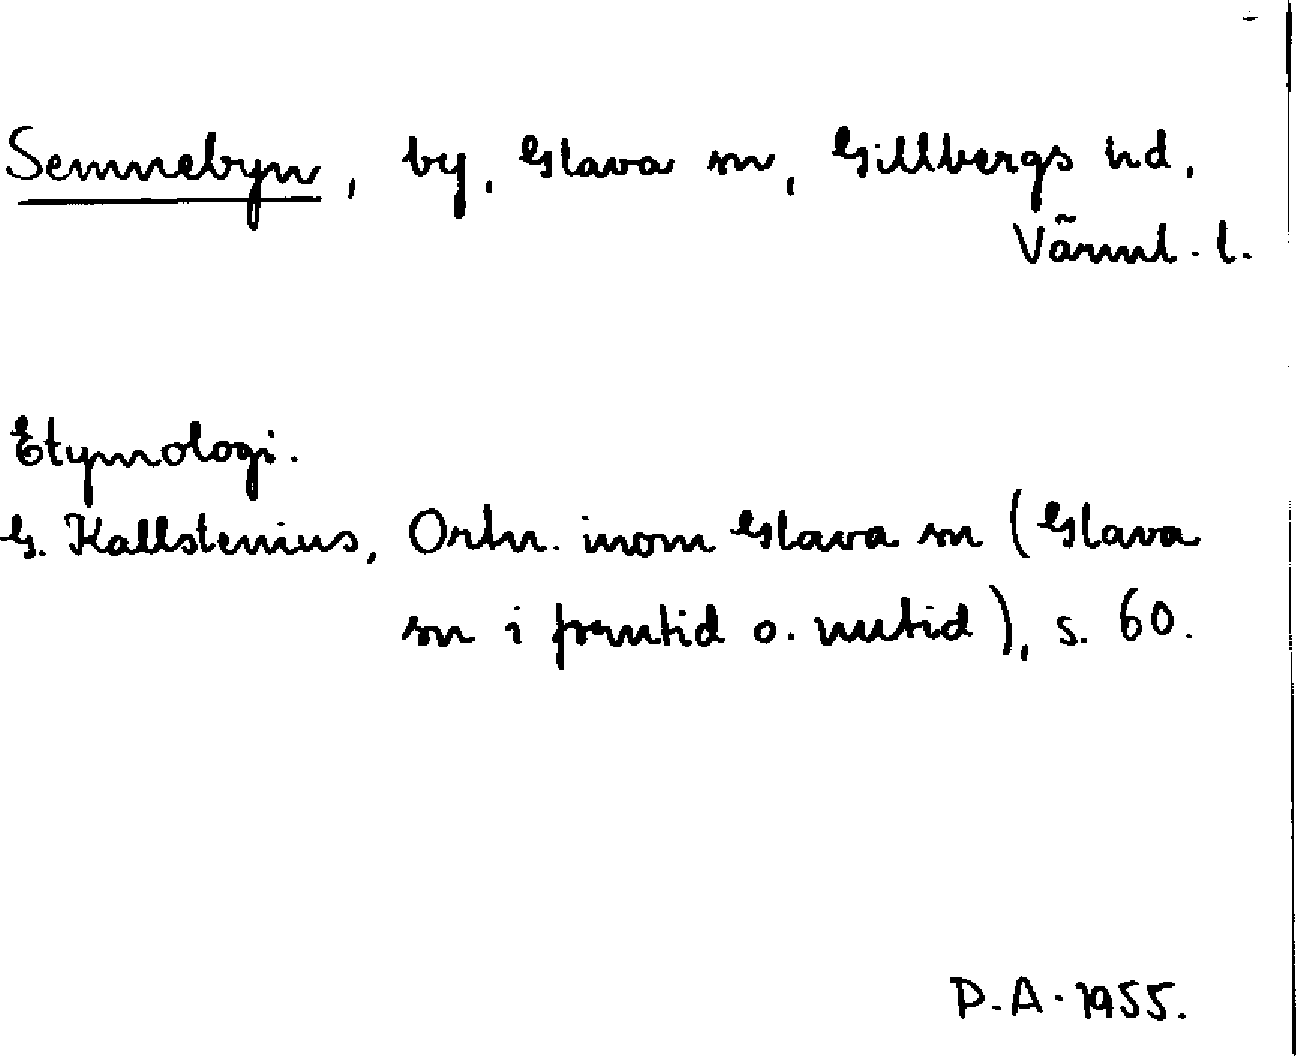 Semnebyn, by, Glava sn, Gillbergs hd,
Värml. l.
Etymologi.
G. Kallstenius, Ortn. inom Glava sn (Glava
sn i forntid o. nutid), s. 60.
D.A. 1955.